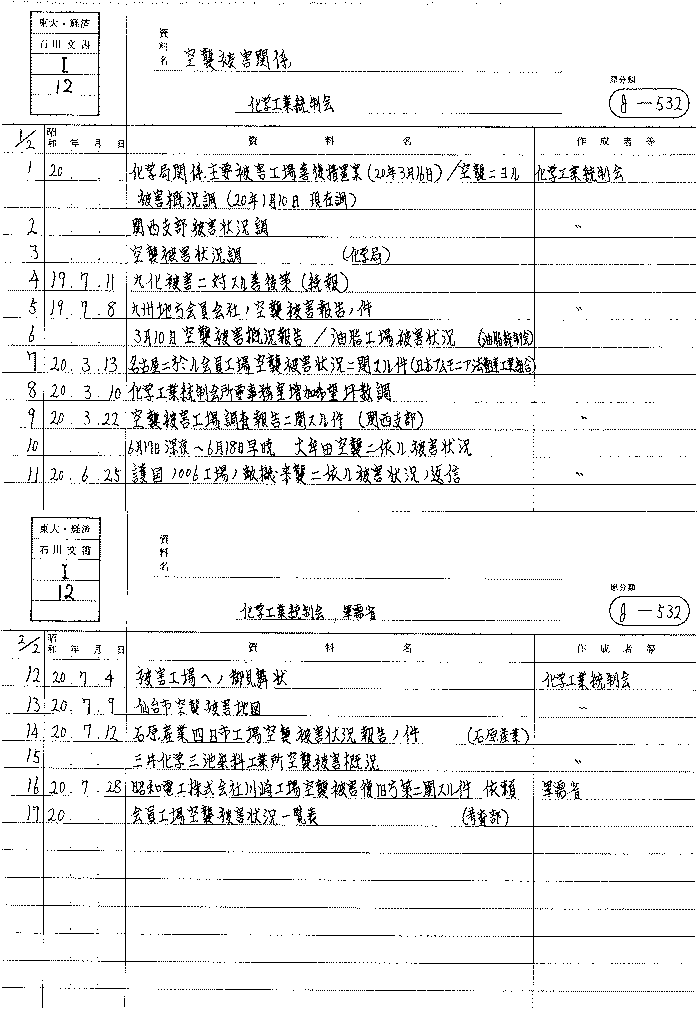 東大・経済
石川文書
I
12
資料名 空襲被害関係
化学工業統制会
原分類
J-532
1/2 昭和 年 月 日 資料名 作成者等
1 20. 化学局関係主要被害工場善後措置案(20年3月16日)/空襲ニヨル 化学工業統制会
被害概況調(20年1月10日 現在調)
2 関西支部被害状況調 〃
3 空襲被害状況調 (化学局)
4 19.7.11 九化被害ニ対スル善後策(続報)
5 19.7.8 九州地方会員会社ノ空襲被害報告ノ件 〃
6 3月10日空襲被害概況報告/油脂工場被害状況 (油脂統制会)
7 20.3.13 名古屋ニ於ル会員工場空襲被害状況ニ関スル件(日本アムモニア法組合)
8 20.3.10 化学工業統制会所要事務室増加希望坪数調
9 20.3.22 空襲被害工場調査報告ニ関スル件 (関西支部) 〃
10 6月17日深夜~6月18日早暁 大牟田空襲ニ依ル被害状況
11 20.6.25 護国1006工場ノ敵機来襲ニ依ル被害状況ノ返信 〃
東大・経済
石川文書
I
12
資料名
化学工業統制会 軍需省
原分類
J-532
2/2 昭和 年 月 日 資料名 作成者等
12 20.7.4 被害工場ヘノ御見舞状 化学工業統制会
13 20.7.9 仙台市空襲被害地図 〃
14 20.7.12 石原産業四日市工場空襲被害状況報告ノ件 (石原産業)
15 三井化学三池染料工業所空襲被害概況 〃
16 20.7.28 昭和電工株式会社川崎工場空襲被害復旧方策ニ関スル件 依頼 軍需省
17 20. 会員工場空襲被害状況一覧表 (考査部)